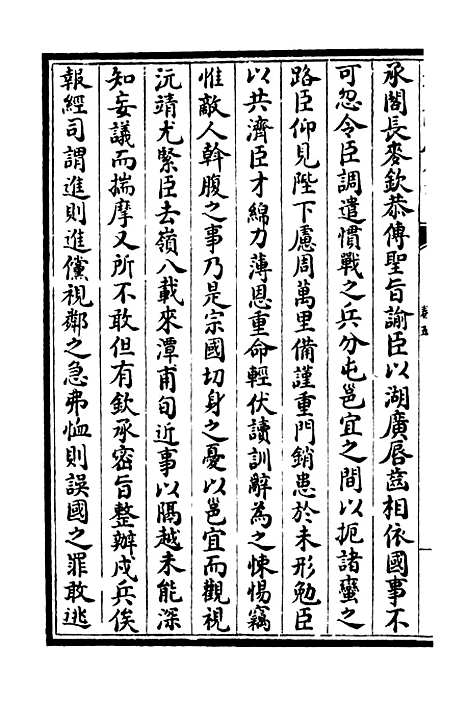 承閣長麥欽恭傳聖旨諭臣以湖廣唇齒相依國事不
可忽令臣調遣慣戰之兵分屯邕宜之間以扼諸蠻之
路臣仰見陛下慮周萬里備謹重門銷患於未形勉臣
以共濟臣才綿力薄恩重命輕伏讀訓辭為之悚惕竊
惟敵人斡腹之事乃是宗國切身之憂以邕宜而觀視
沅靖尤緊臣去嶺八載來潭甫旬近事以隔越未能深
知妄議而揣摩又所不敢但有欽承密旨整辦戍兵俟
報經司謂進則進儻視鄰之急弗恤則誤國之罪敢逃
卷五